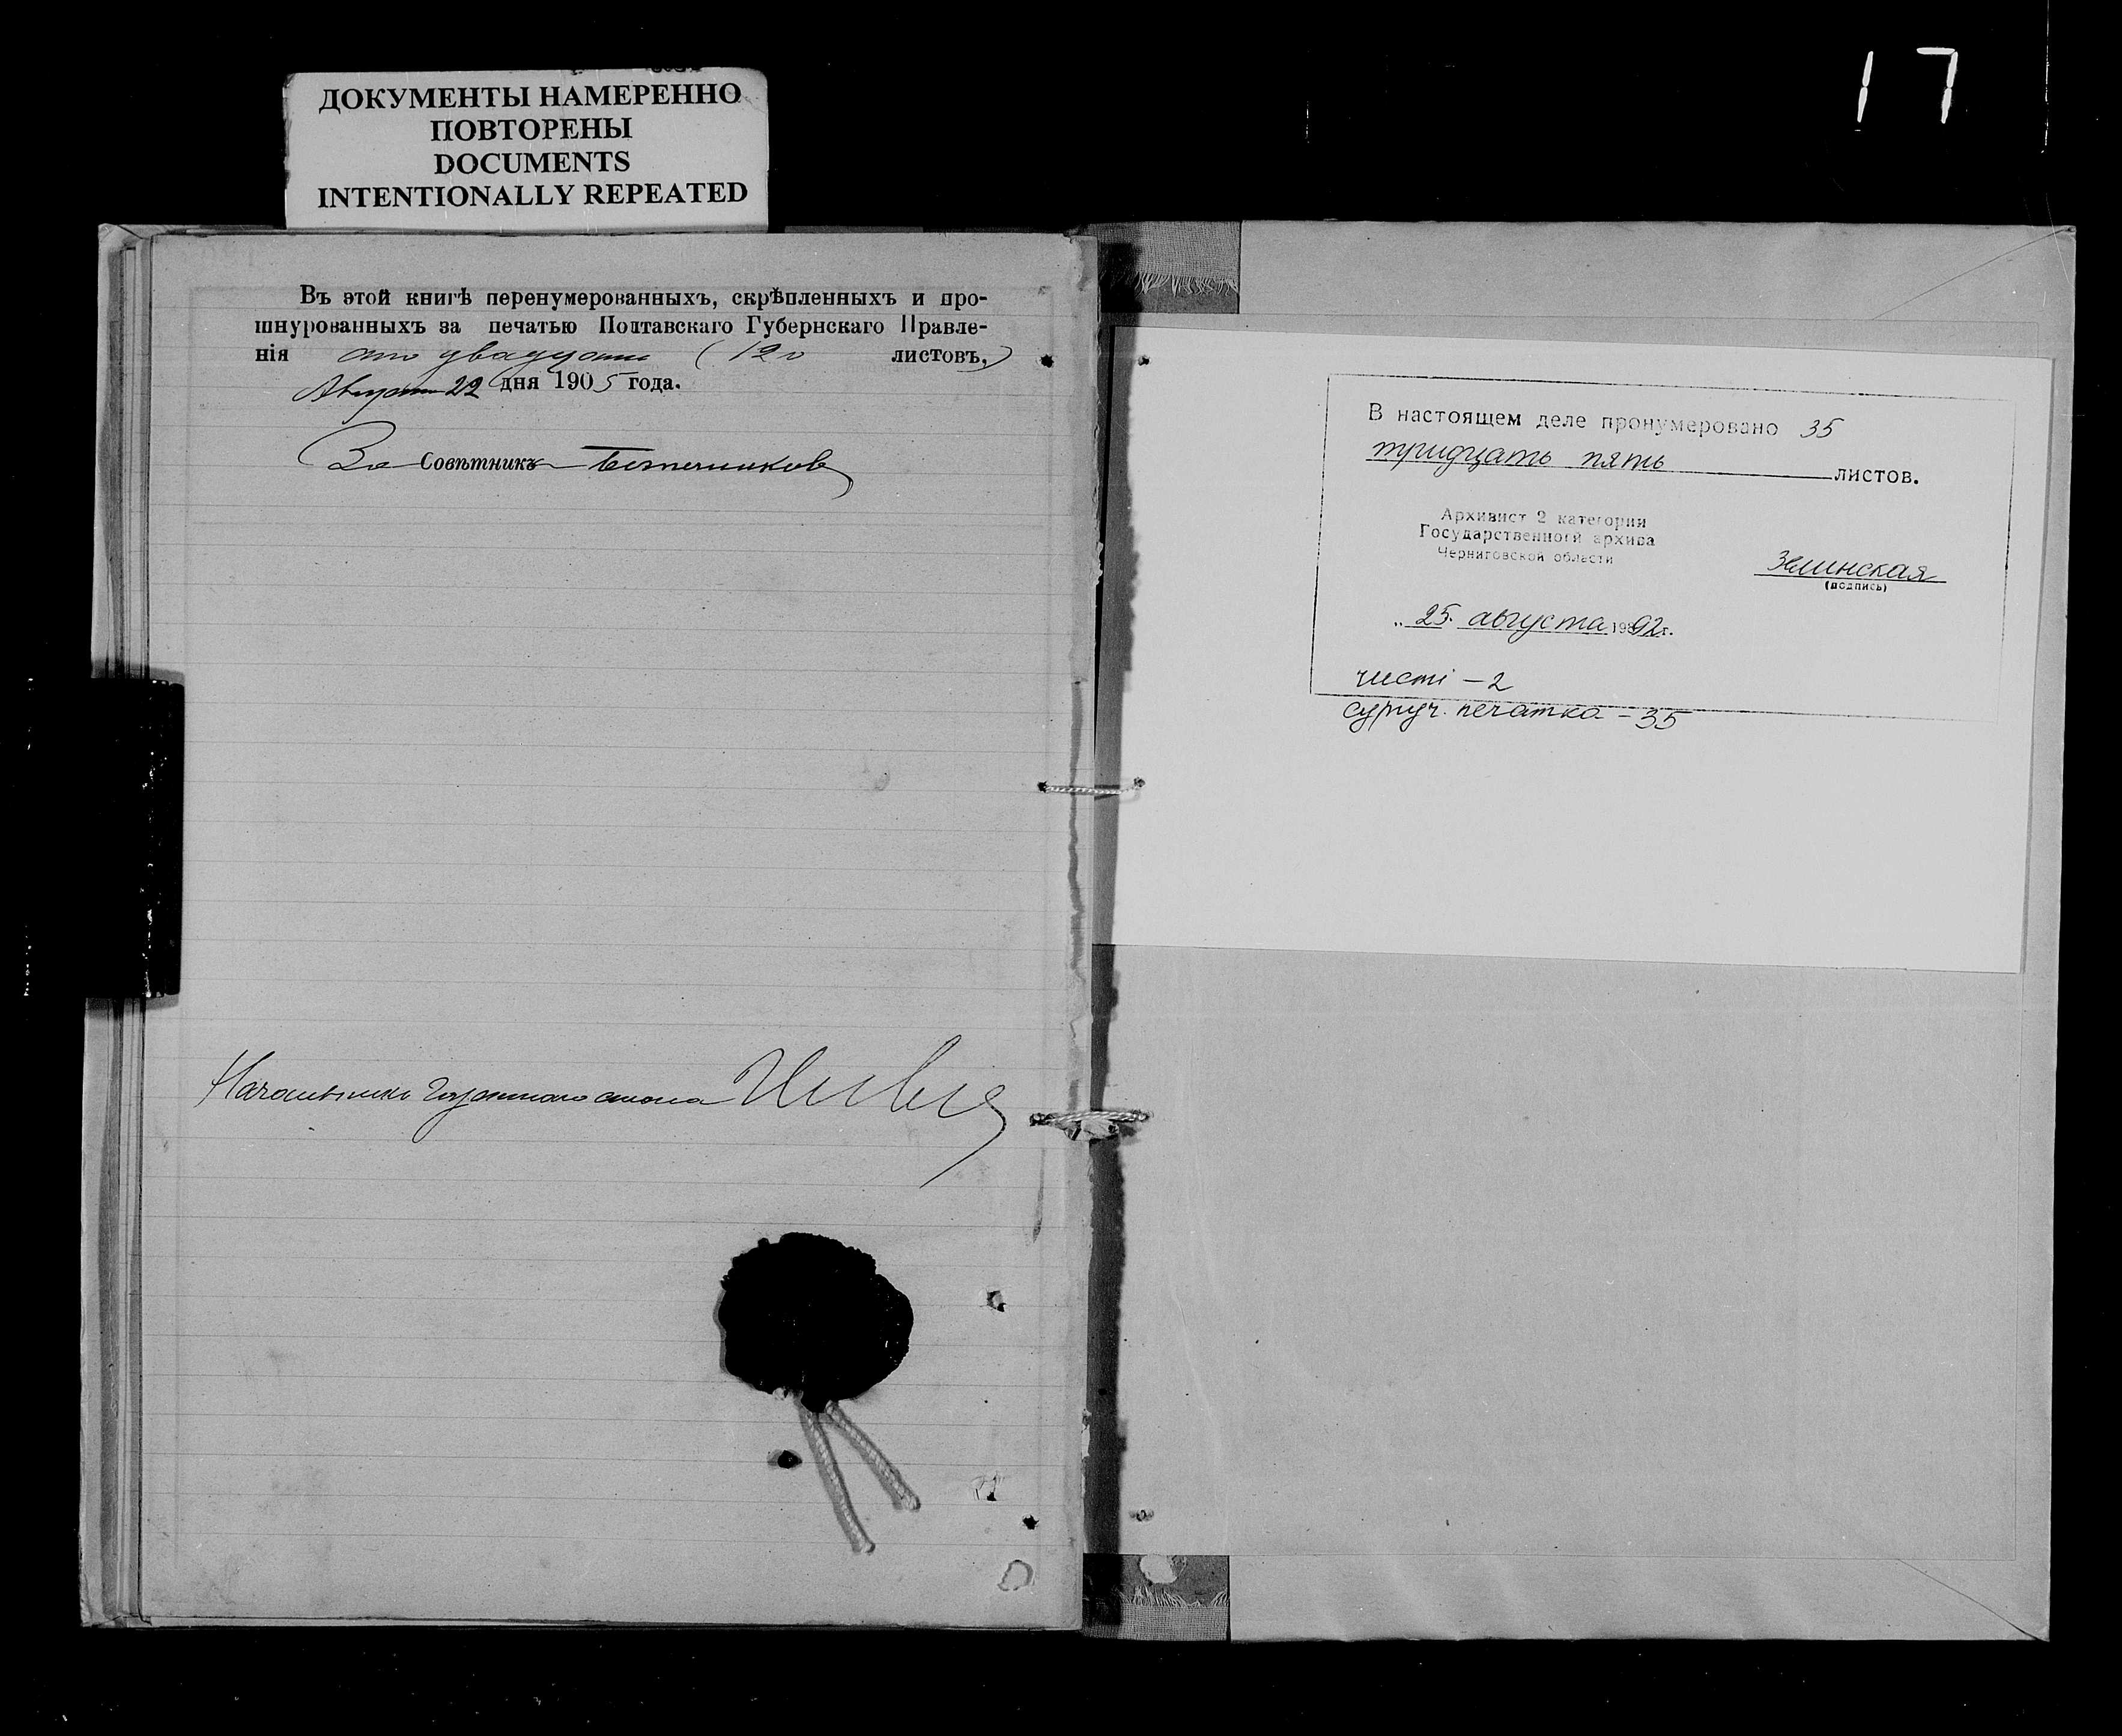 17
ДОКУМЕНТЫ НАМЕРЕННО
ПОВТОРЕНЫ
DOCUMENTS
INTENTIONALLY REPEATED
Въ этой книгѣ перенумерованныхъ, скрѣпленныхъ и про-
шнурованныхъ за печатью Полтавскаго Губернскаго Правле-
нія сто двадцать (120 листовъ,)
Августа 22 дня 1905 года.
За Совѣтникъ
Начальникъ Газетнаго стола
В настоящем деле пронумеровано 35
тридцать пять листов.
Архивист 2 категории
Государственногй архива
Черниговской области
(подпись)
„ 25. августа 1992г.
чисті – 2
сургуч. печатка – 35